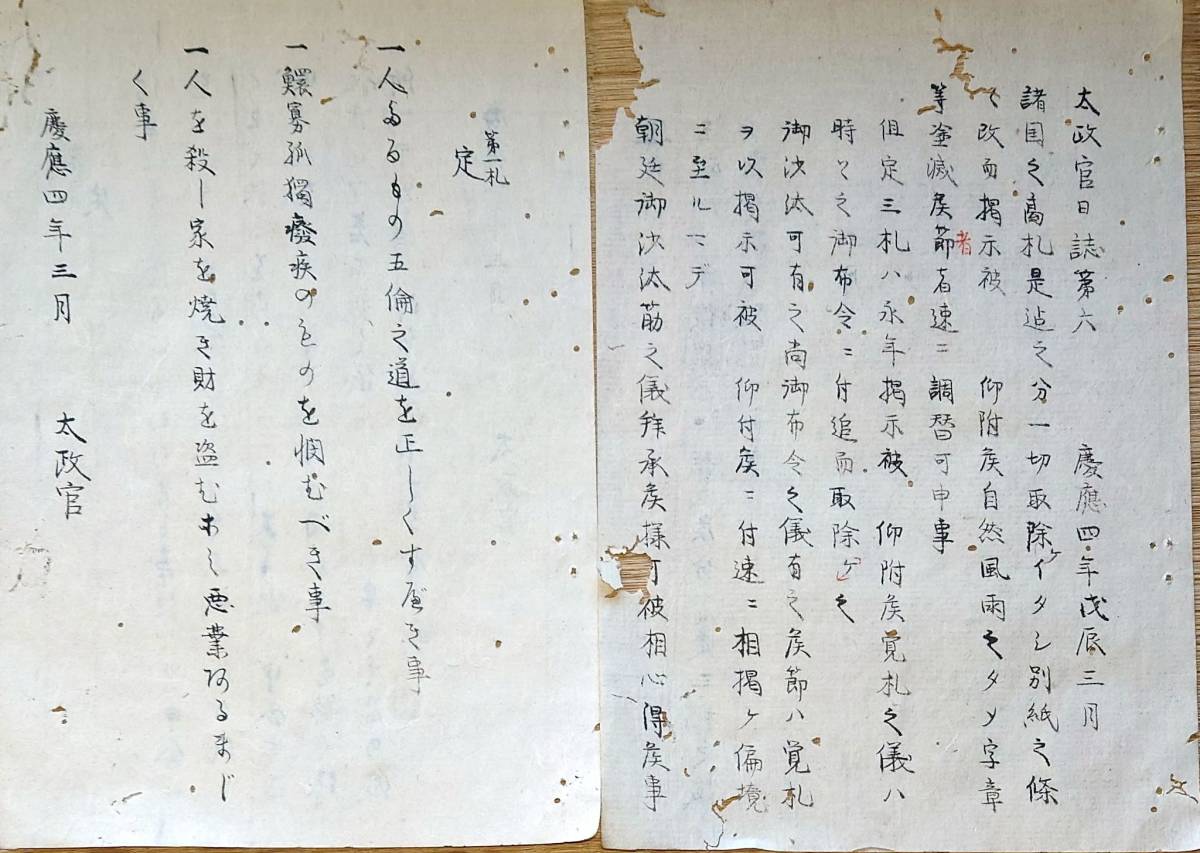 太政官日誌第六　慶應四年戊辰三月
諸国之高札是迠之分一切取除ケイタシ別紙之條
々改而掲示被　仰附矦自然風雨之タメ字章
等塗滅矦節者者速ニ調替可申事
但定三札ハ永年掲示被　仰附矦覚札之儀ハ
時々之御布令ニ付追而取除ケ之
御沙汰可有之尚御布令之儀有之矦節ハ覚札
ヲ以掲示可被　仰付矦ニ付速ニ相掲ケ偏境
ニ至ルマデ
朝廷御沙汰筋之儀拜承矦様可被相心得矦事
第一札
定
一人たるもの五倫之道を正しくすべき事
一鰥寡孤獨癈疾のものを憫むべき事
一人を殺し家を焼き財を盗む等之悪業あるまじ
く事
慶應四年三月　太政官